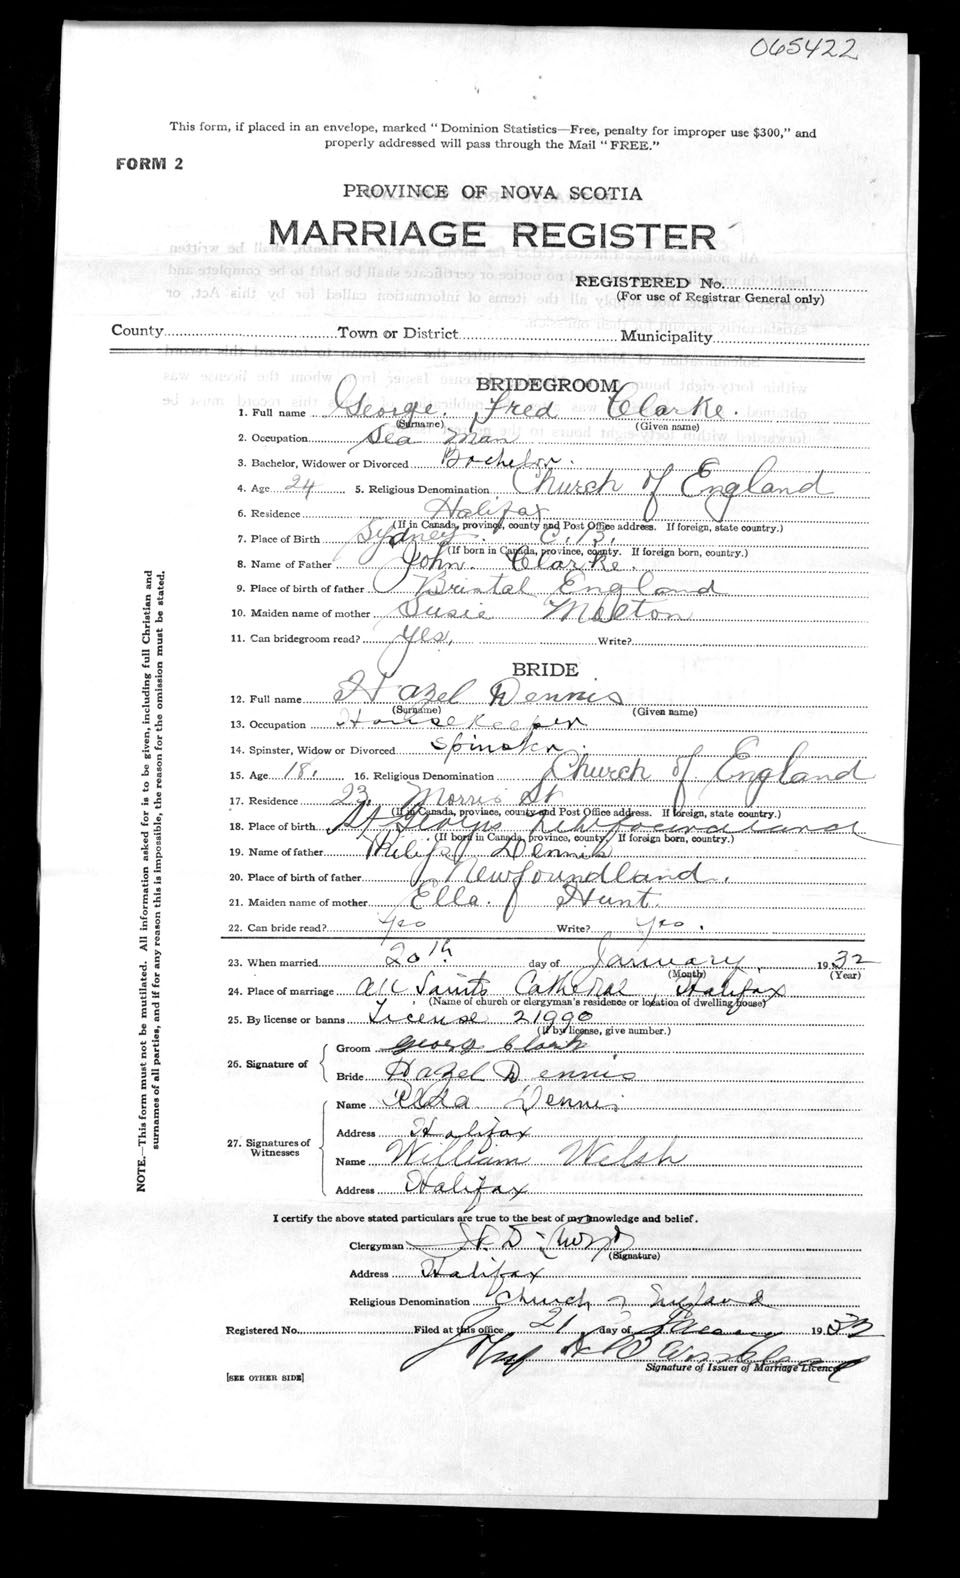 065422
This form, if placed in an envelope, marked "Dominion Statistics—Free, penalty for improper use $300," and
properly addressed will pass through the Mail "FREE."
FORM 2
PROVINCE OF NOVA SCOTIA
MARRIAGE REGISTER
REGISTERED No.
(For use of Registrar General only)
County Town or District Municipality
BRIDEGROOM
1. Full name George Fred Clarke.
(Surname) (Given name)
2. Occupation Sea Man
3. Bachelor, Widower or Divorced Bachelor.
4. Age 24 5. Religious Denomination Church of England
6. Residence Halifax
(If in Canada, province, county and Post Office address. If foreign, state country.)
7. Place of Birth Sydney. C.B.
(If born in Canada, province, county. If foreign born, country.)
8. Name of Father John Clarke.
9. Place of birth of father Bristal England
10. Maiden name of mother Susie
11. Can bridegroom read? Yes, Write?
BRIDE
12. Full name Hazel Dennis
(Surname) (Given name)
13. Occupation House Keeper
14. Spinster, Widow or Divorced Spinster.
15. Age 18. 16. Religious Denomination Church of England
17. Residence 23 Morris St
(If in Canada, province, county and Post Office address. If foreign, state country.)
18. Place of birth St Newfoundland
(If born in Canada, province, county. If foreign born, country.)
19. Name of father Philip Dennis
20. Place of birth of father Newfoundland.
21. Maiden name of mother Ella. Hunt.
22. Can bride read? Yes Write? Yes.
23. When married 20th day of January. 1932
(Month) (Year)
24. Place of marriage All Saints Cathedral Halifax
(Name of church or clergyman's residence or location of dwelling house)
25. By license or banns License 21990
(If by license, give number.)
26. Signature of
Groom George Clark
Bride Hazel Dennis
27. Signatures of Witnesses
Name Dennis
Address Halifax
Name William Welsh
Address Halifax
I certify the above stated particulars are true to the best of my knowledge and belief.
Clergyman
(Signature)
Address Halifax
Religious Denomination Church of England
Registered No. Filed at this office 21 day of January 1932
Signature of Issuer of Marriage Licence
[SEE OTHER SIDE]
NOTE.—This form must not be mutilated. All information asked for is to be given, including full Christian and
surnames of all parties, and if for any reason this is impossible, the reason for the omission must be stated.